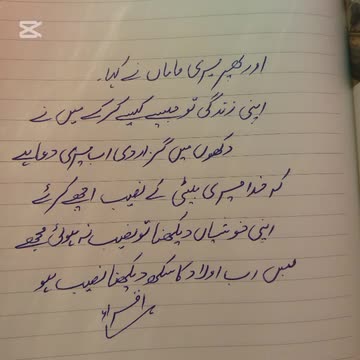 اور پھر میری ماماں نے کہا۔
اپنی زندگی تو جیسے کیسے کرکے میں نے
دکھوں میں گزار دی اب میری دعا ہے
کہ خدا میری بیٹی کے نصیب اچھے کرئے
اپنی خوشیاں دیکھنا تو نصیب نہ ہوئی مجھے
بس رب اولاد کا سکھ دیکھنا نصیب ہو